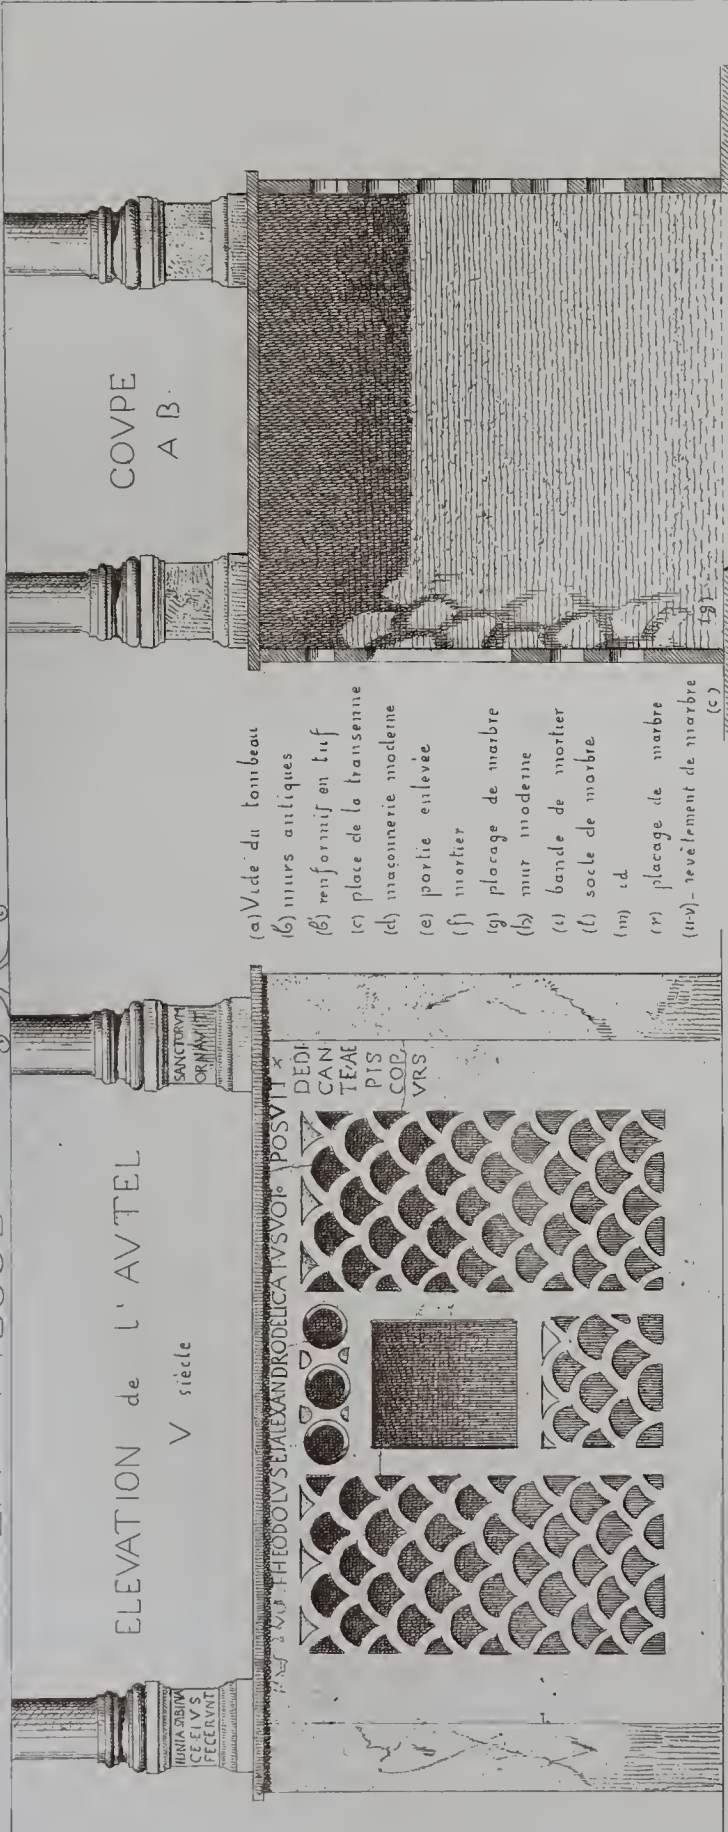 ELEVATION de L'AVTEL
V siècle
IVNIA SABINA
CE EIVS
FECERVNT
SANCTORVM
ORNAVIT
THEODOLVS ET ALEXANDRO DELICATVS VOTO POSVIT
DEDI
CAN
TEAE
PIS
COP
VRS
(a) Vide du tombeau
(b) murs antiques
(b') renformis en tuf
(c) place de la transenne
(d) maçonnerie moderne
(e) partie enlevée
(f) mortier
(g) placage de marbre
(h) mur moderne
(i) bande de mortier
(l) socle de marbre
(m) id
(r) placage de marbre
(u-v) - revêtement de marbre
COVPE
A B
(g)
(c)